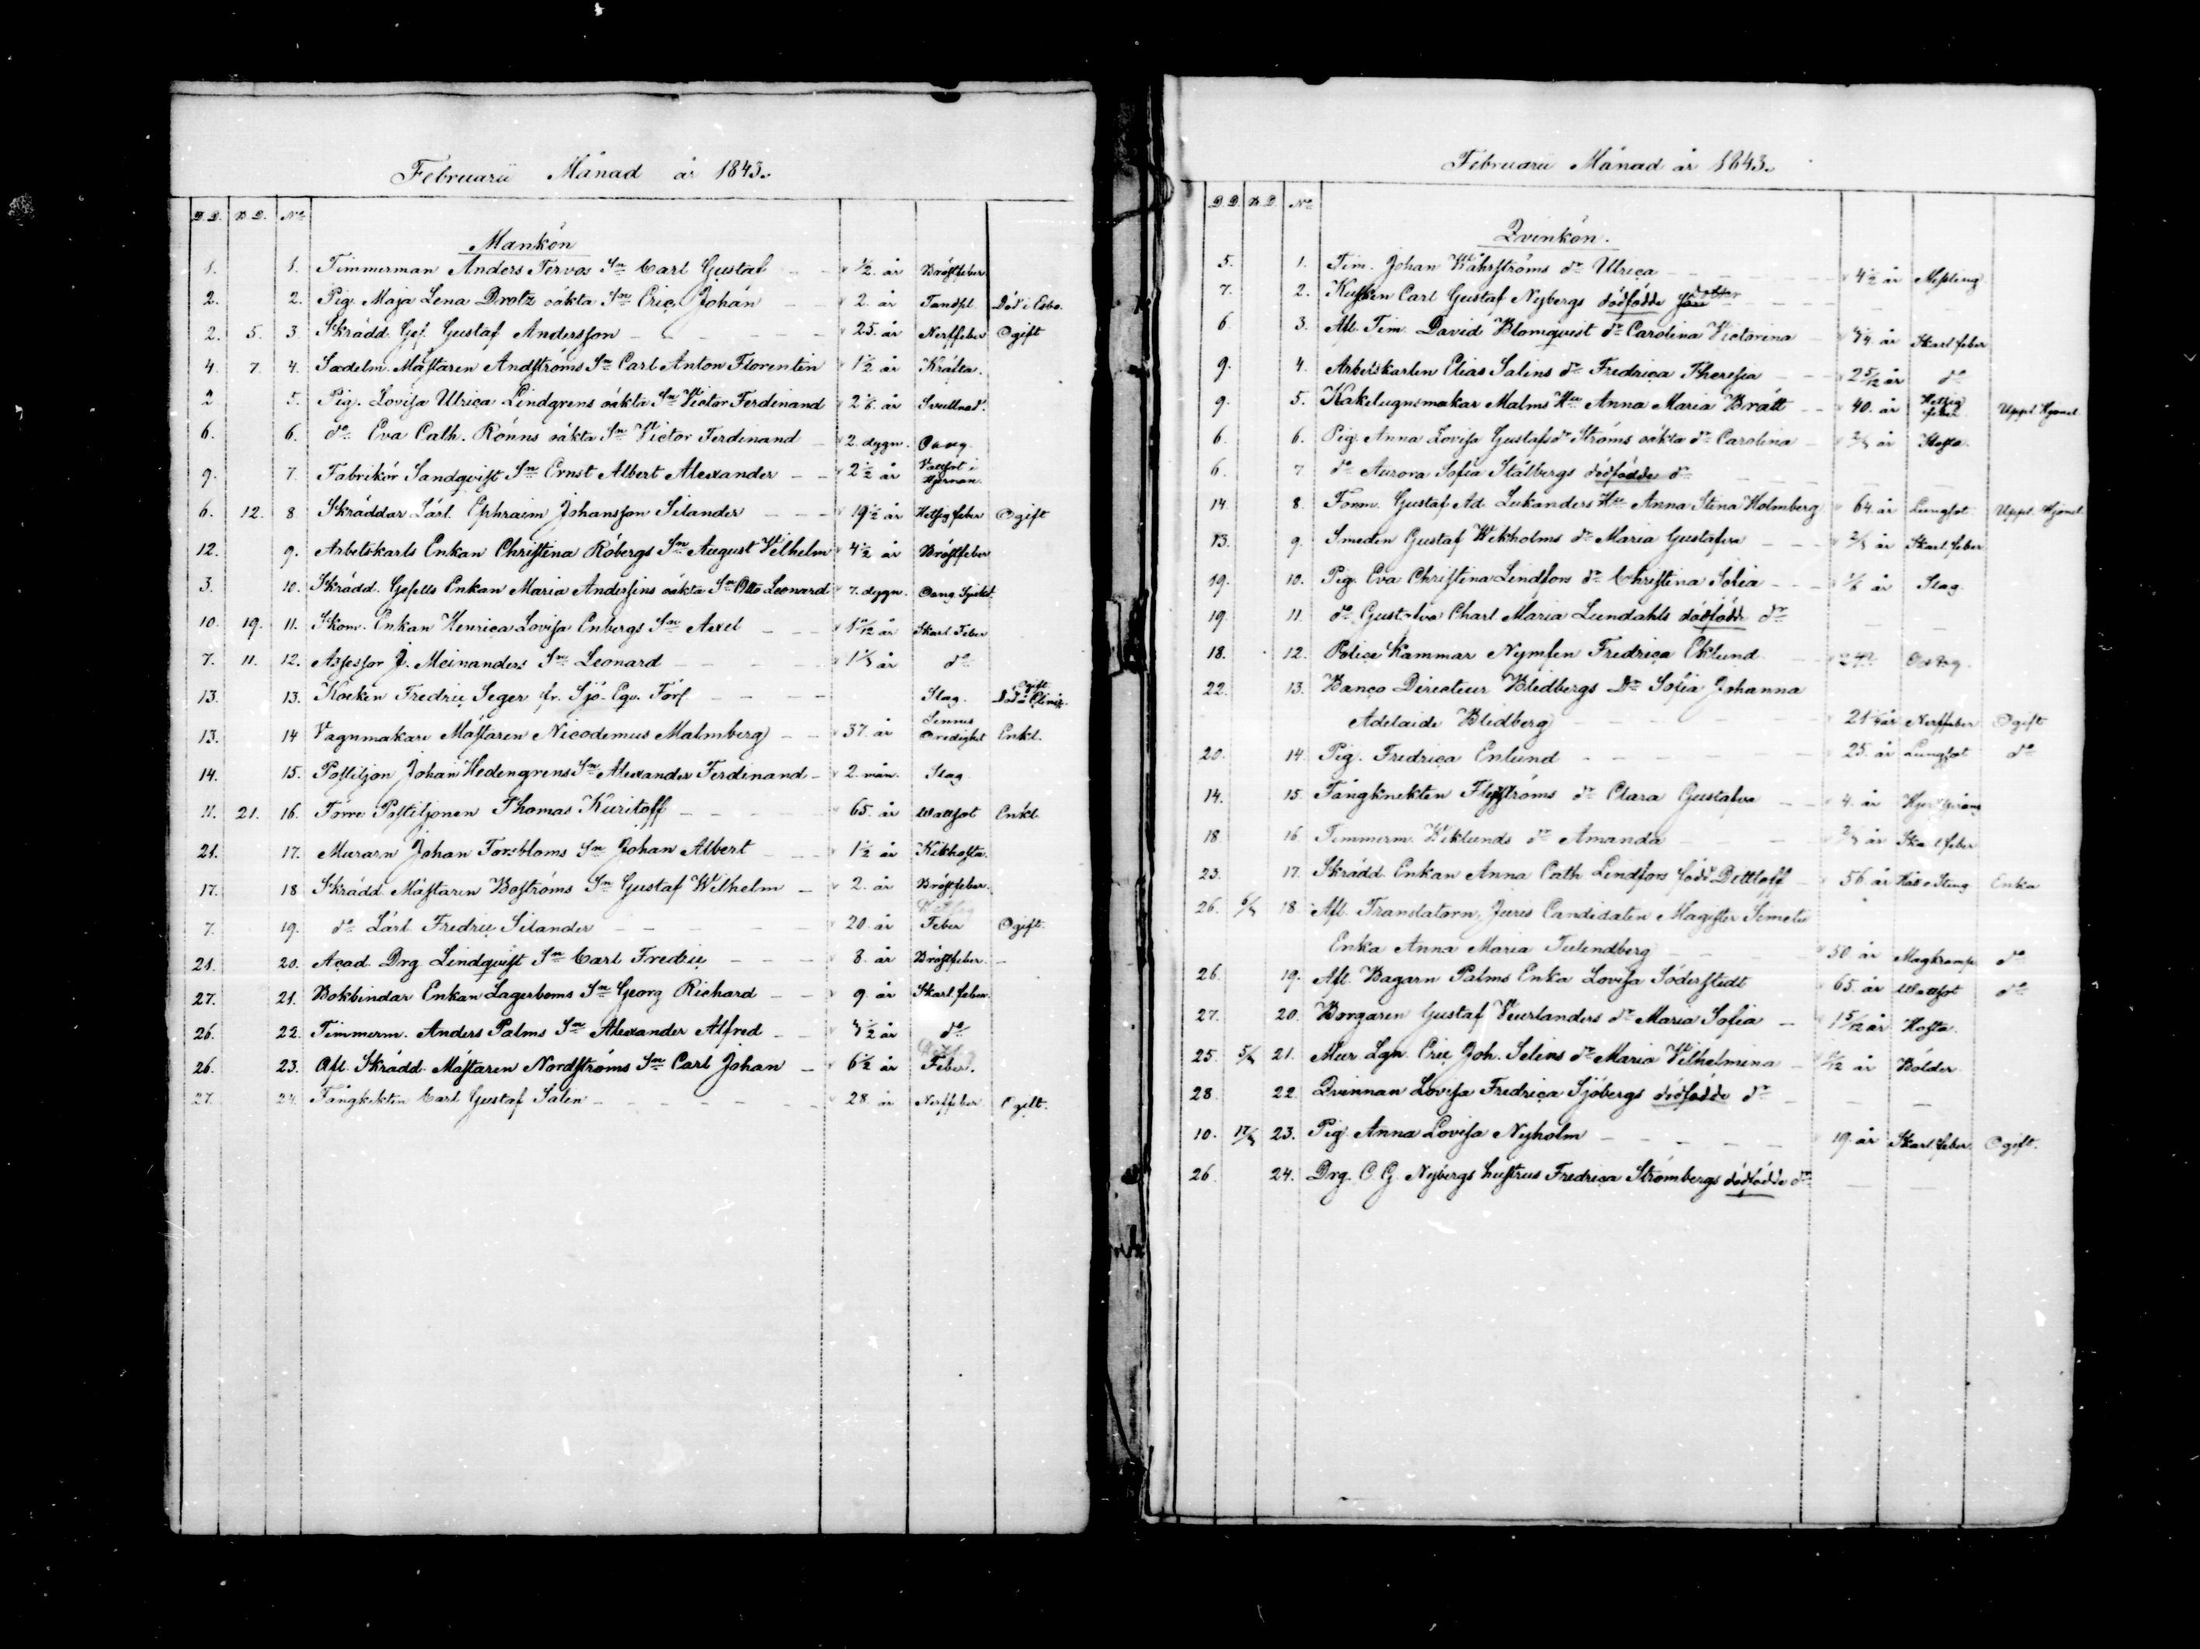 Februarii Månad år 1843.
D.D. B.D. No
Mankön
1. 1. Timmerman Anders Tervos Sn Carl Gustaf ½ år Bröstfeber
2. 2. Pig. Maja Lena Drotz oäkta Sn Eric Johan 2. år Tandspl. Död i Esbo.
2. 5. 3. Skrädd. Ges. Gustaf Andersson 25. år Nerffeber Ogift
4. 7. 4. Sadelm. Mästaren Andströms Sn Carl Anton Florentin 1½ år Kräfta.
2 5. Pig. Lovisa Ulrica Lindgrens oäkta Sn Victor Ferdinand 2 år Svullnad.
6. 6. do Eva Cath. Rönns oäkta Sn Victor Ferdinand 2. dygn.
9. 7. Fabrikör Sandqvist Sn Ernst Albert Alexander 2½ år Vattsot i Hjernan.
6. 12. 8 Skräddar Lärl. Ephraim Johansson Silander 19½ år Hetsig feber Ogift
12. 9. Arbetskarls Enkan Christina Röbergs Sn August Vilhelm 4½ år Bröstfeber
3. 10. Skrädd. Gesells Enkan Maria Andersins oäkta Sn Otto Leonard 7. dygn.
10. 19. 11. Skom. Enkan Henrica Lovisa Enbergs Sn Axel år Skarl. Feber
7. 11. 12. Assessor J. Meinanders Sn Leonard år do
13. 13. Kocken Fredric Seger fr. Sjö-Eqv. Slag. Ogift Död i Clinic.
13. 14 Vagnmakare Mästaren Nicodemus Malmberg 37. år Sinnes Oredighet Enkl.
14. 15. Postiljon Johan Hedengrens Sn Alexander Ferdinand 2. mån. Slag
11. 21. 16. Förre Postiljonen Thomas Kuritoff 65. år Wattsot Enkl.
21. 17. Murarn Johan Forsbloms Sn Johan Albert 1½ år Kikhosta.
17. 18 Skrädd. Mästaren Boströms Sn Gustaf Wilhelm 2. år Bröstfeber.
7. 19. do Lärl. Fredric Silander 20. år Hetsig Feber Ogift.
21. 20. Acad. Drg Lindqvist Sn Carl Fredric 8. år Bröstfeber.
27. 21. Bokbindar Enkan Lagerboms Sn Georg Richard 9. år Skarl. feber
26. 22. Timmerm. Anders Palms Sn Alexander Alfred ½ år do
26. 23. Afl. Skrädd. Mästaren Nordströms Sn Carl Johan 6½ år Hetsig Feber.
27. 24. Fångknekten Carl Gustaf Salén 28 år Nerffeber Ogift.
Februarii Månad år 1843.
D.D. B.D. No
Qvinkön.
5. 1. Tim. Johan Wåhrströms dr Ulrica 4½ år Messling
7. 2. Kusken Carl Gustaf Nybergs dödfödde dotter
6 3. Afl. Tim. David Blomquist dr Carolina Victorina år Skarl. feber
9. 4. Arbetskarlen Elias Salins dr Fredrica Theresia 2 5/12 år do
9. 5. Kakelugnsmakar Malms Hu Anna Maria Brått 40. år Hetsig feber Uppl. Hjonel.
6. 6. Pig. Anna Lovisa Gustafsdr Ströms oäkta dr Carolina år Hosta.
6. 7 do Aurora Sofia Stålbergs dödfödde dr
14. 8. Form. Gustaf Ad. Lukanders Hu Anna Stina Holmberg 64. år Lungsot Uppl. Hjonel.
13. 9. Smeden Gustaf Wekholms dr Maria Gustafva år Skarl. feber
19. 10. Pig. Eva Christina Lindfors dr Christina Sofia år Slag.
19. 11. do Gustafva Charl. Maria Lundahls dödfödde dr
18. 12. Police Kammar Nymfen Fredrica Eklund
22. 13. Banco Directeur Blidbergs Dr Sofia Johanna
Adelaide Blidberg 21 ¼ år Nerffeber Ogift
20. 14. Pig. Fredrica Enlund 25. år Lungsot do
14. 15. Fångknekten Flyströms dr Clara Gustafva 4. år
18 16 Timmerm. Wiklunds dr Amanda år Skarl. feber
23. 17. Skrädd. Enkan Anna Cath. Lindfors född Dettloff 56. år Håll o Sting Enka
26. 18. Afl. Translatorn, Juris Candidaten Magister
Enka Anna Maria Tulindberg 50 år Magkramp do
26. 19. Afl. Bagarn Palms Enka Lovisa Söderstedt 65. år Wattsot do
27. 20. Borgaren Gustaf Veurlanders dr Maria Sofia 1 5/12 år Hosta.
25. 21. Mur. Lgn. Eric Joh. Selins dr Maria Vilhelmina år Bölder
28. 22. Qvinnan Lovisa Fredrica Sjöbergs dödfödde dr
10. 23. Pig. Anna Lovisa Nyholm 19. år Skarl. feber. Ogift.
26 24. Drg. C. G. Nybergs hustrus Fredrica Strömbergs dödfödde dr